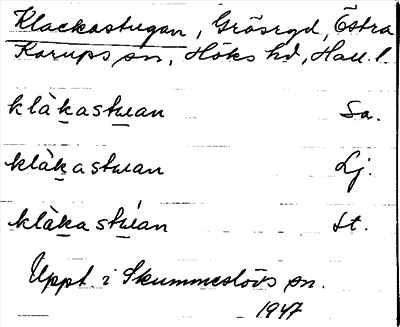 Klackastugan, Gråsegd, Östra
Karups sn, Höks hd, Hall. l.
klàkastuan Sa.
klàkastuan Lj.
klàkastúan St.
Uppt. i Skummeslövs sn.
1947